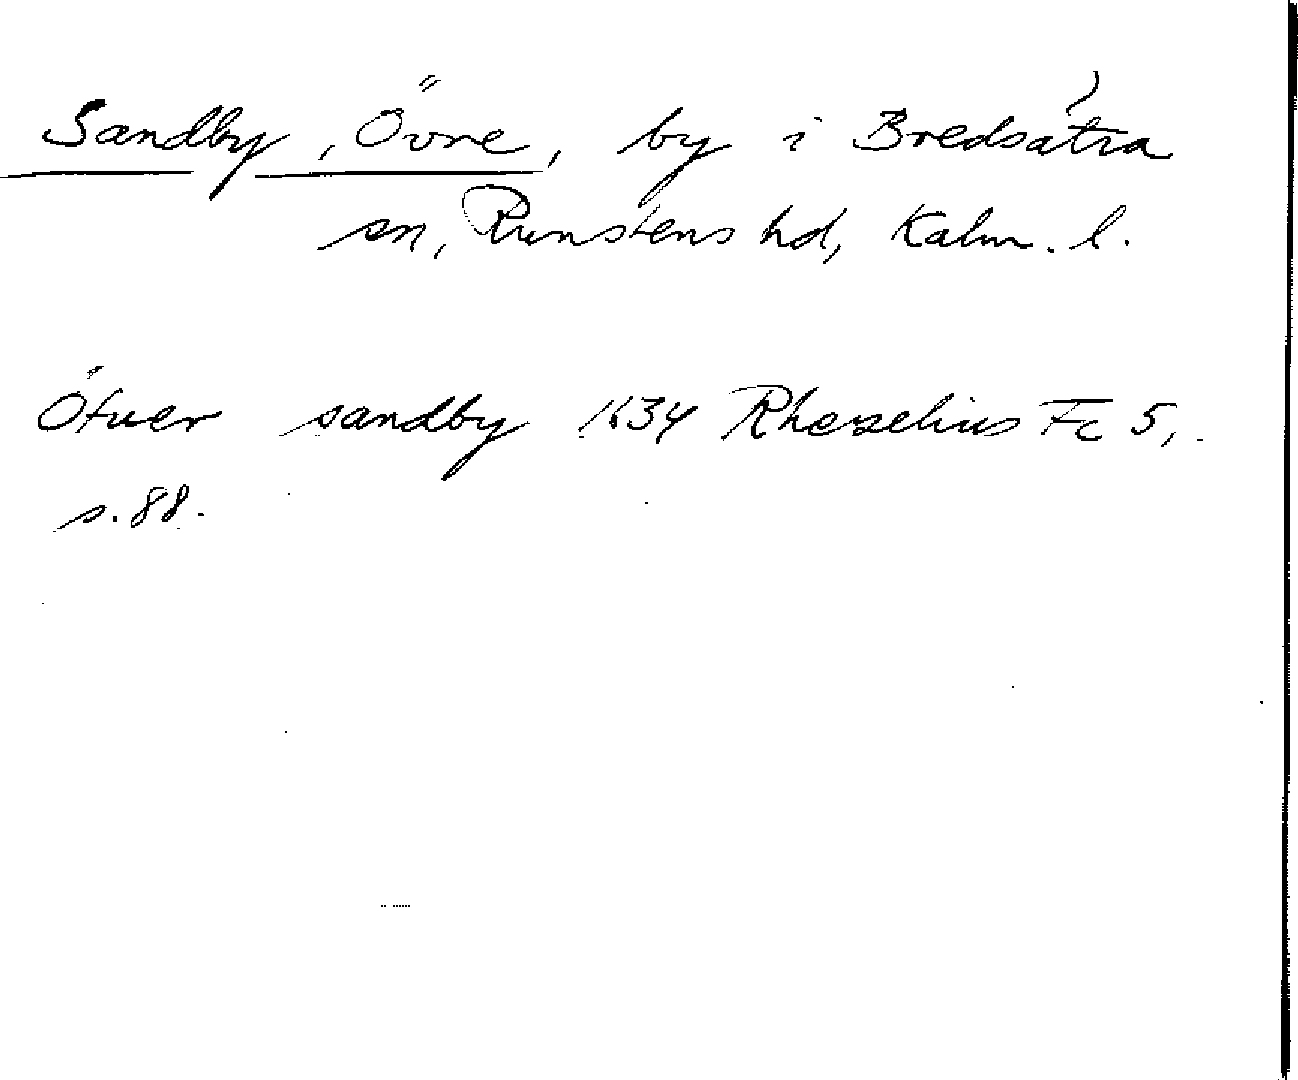 Sandby, Övre, by i Bredsätra
sn, Runstens hd, Kalm. l.
Öfuer sandby 1634 Rhezelius Fc 5,
s. 88.